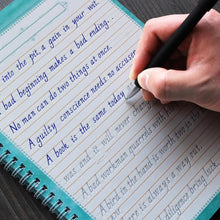 into the pit, a gain in your wit
bad beginning makes a bad ending...
No man can do two things at once.
A guilty conscience needs no accuser
A book is the same today
was and it will never change
A bad workman quarrels with
A bird in the hand is worth two in
there is always a way